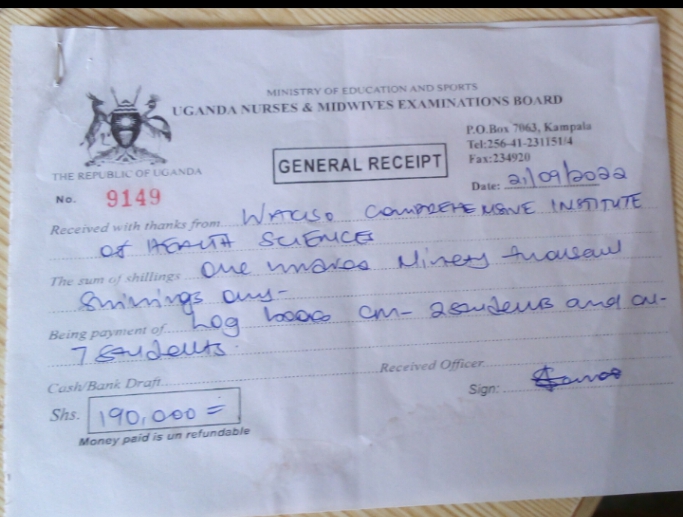 MINISTRY OF EDUCATION AND SPORTS
UGANDA NURSES & MIDWIVES EXAMINATIONS BOARD
P.O.Box 7063, Kampala
Tel:256-41-231151/4
Fax:234920
THE REPUBLIC OF UGANDA
GENERAL RECEIPT
Date: 21/09/2022
No. 9149
Received with thanks from WAKISO COMPREHENSIVE INSTITUTE
OF HEALTH SCIENCES
The sum of shillings One Hundred Ninety thousand
Shillings only-
Being payment of Log books CM- 2 students and CN-
7 Students
Cash/Bank Draft
Received Officer
Sign:
Shs. 190,000 =
Money paid is un refundable